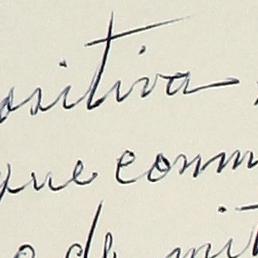 ositiva
que comm
de mi